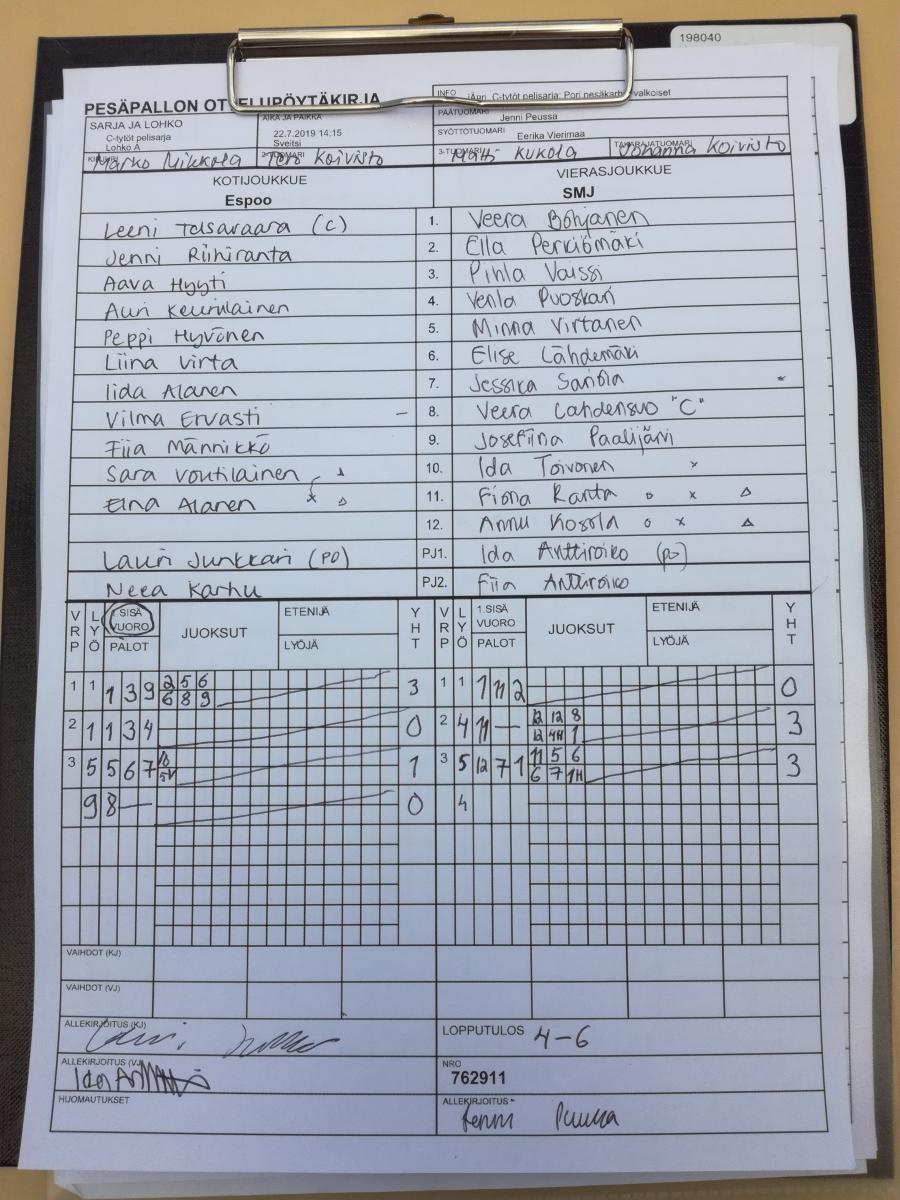 198040
PESÄPALLON OT ELUPÖYTÄKIRJA
INFO jÄgri, C-tytöt pelisarja: Pori
PÄÄTUOMARI Jenni Peussa
SARJA JA LOHKO
C-tytöt pelisarja
Lohko A
AIKA JA PAIKKA
22.7.2019 14:15
Sveitsi
SYÖTTÖTUOMARI Eerika Vierimaa
Marko Mikkola
2-TUOMARI Tero Koivisto
3-TUOMARI Matti Kukola
Johanna Koivisto
KOTIJOUKKUE
Espoo
VIERASJOUKKUE
SMJ
Leeni (C) 1. Veera
Jenni Riihiranta 2. Ella Perkiömäki
Aava Hyyti 3. Pihla Vaissi
Auri 4. Venla Puoskari
Peppi Hyvönen 5. Minna Virtanen
Liina Virta 6. Elise Lähdemäki
Iida Alanen 7. Jessika
Vilma Ervasti – 8. Veera Lahdensuo "C"
Fiia Männikkö 9. Josefiina Paalijärvi
Sara Voutilainen 10. Ida Toivonen x
Elna Alanen x △ 11. Fiona Ranta o x △
12. Annu Kosola o x △
Lauri Junkkari (PO) PJ1. Ida Anttiroiko
Neea Karhu PJ2. Fiia Anttiroiko
VRP LYÖ 1.SISÄ VUORO PALOT JUOKSUT ETENIJÄ LYÖJÄ YHT VRP LYÖ 1.SISÄ VUORO PALOT JUOKSUT ETENIJÄ LYÖJÄ YHT
1 1 1 3 9 2 5 6 3 1 1 1 11 2 0
6 8 9
2 1 1 3 4 0 2 4 11 — 12 12 8 3
12 4H 1
3 5 5 6 7 10 1 3 5 12 7 1 11 5 6 3
6 7 1H
9 8 — 0 4
VAIHDOT (KJ)
VAIHDOT (VJ)
ALLEKIRJOITUS (KJ)
LOPPUTULOS 4-6
ALLEKIRJOITUS (VJ)
NRO
762911
HUOMAUTUKSET
ALLEKIRJOITUS